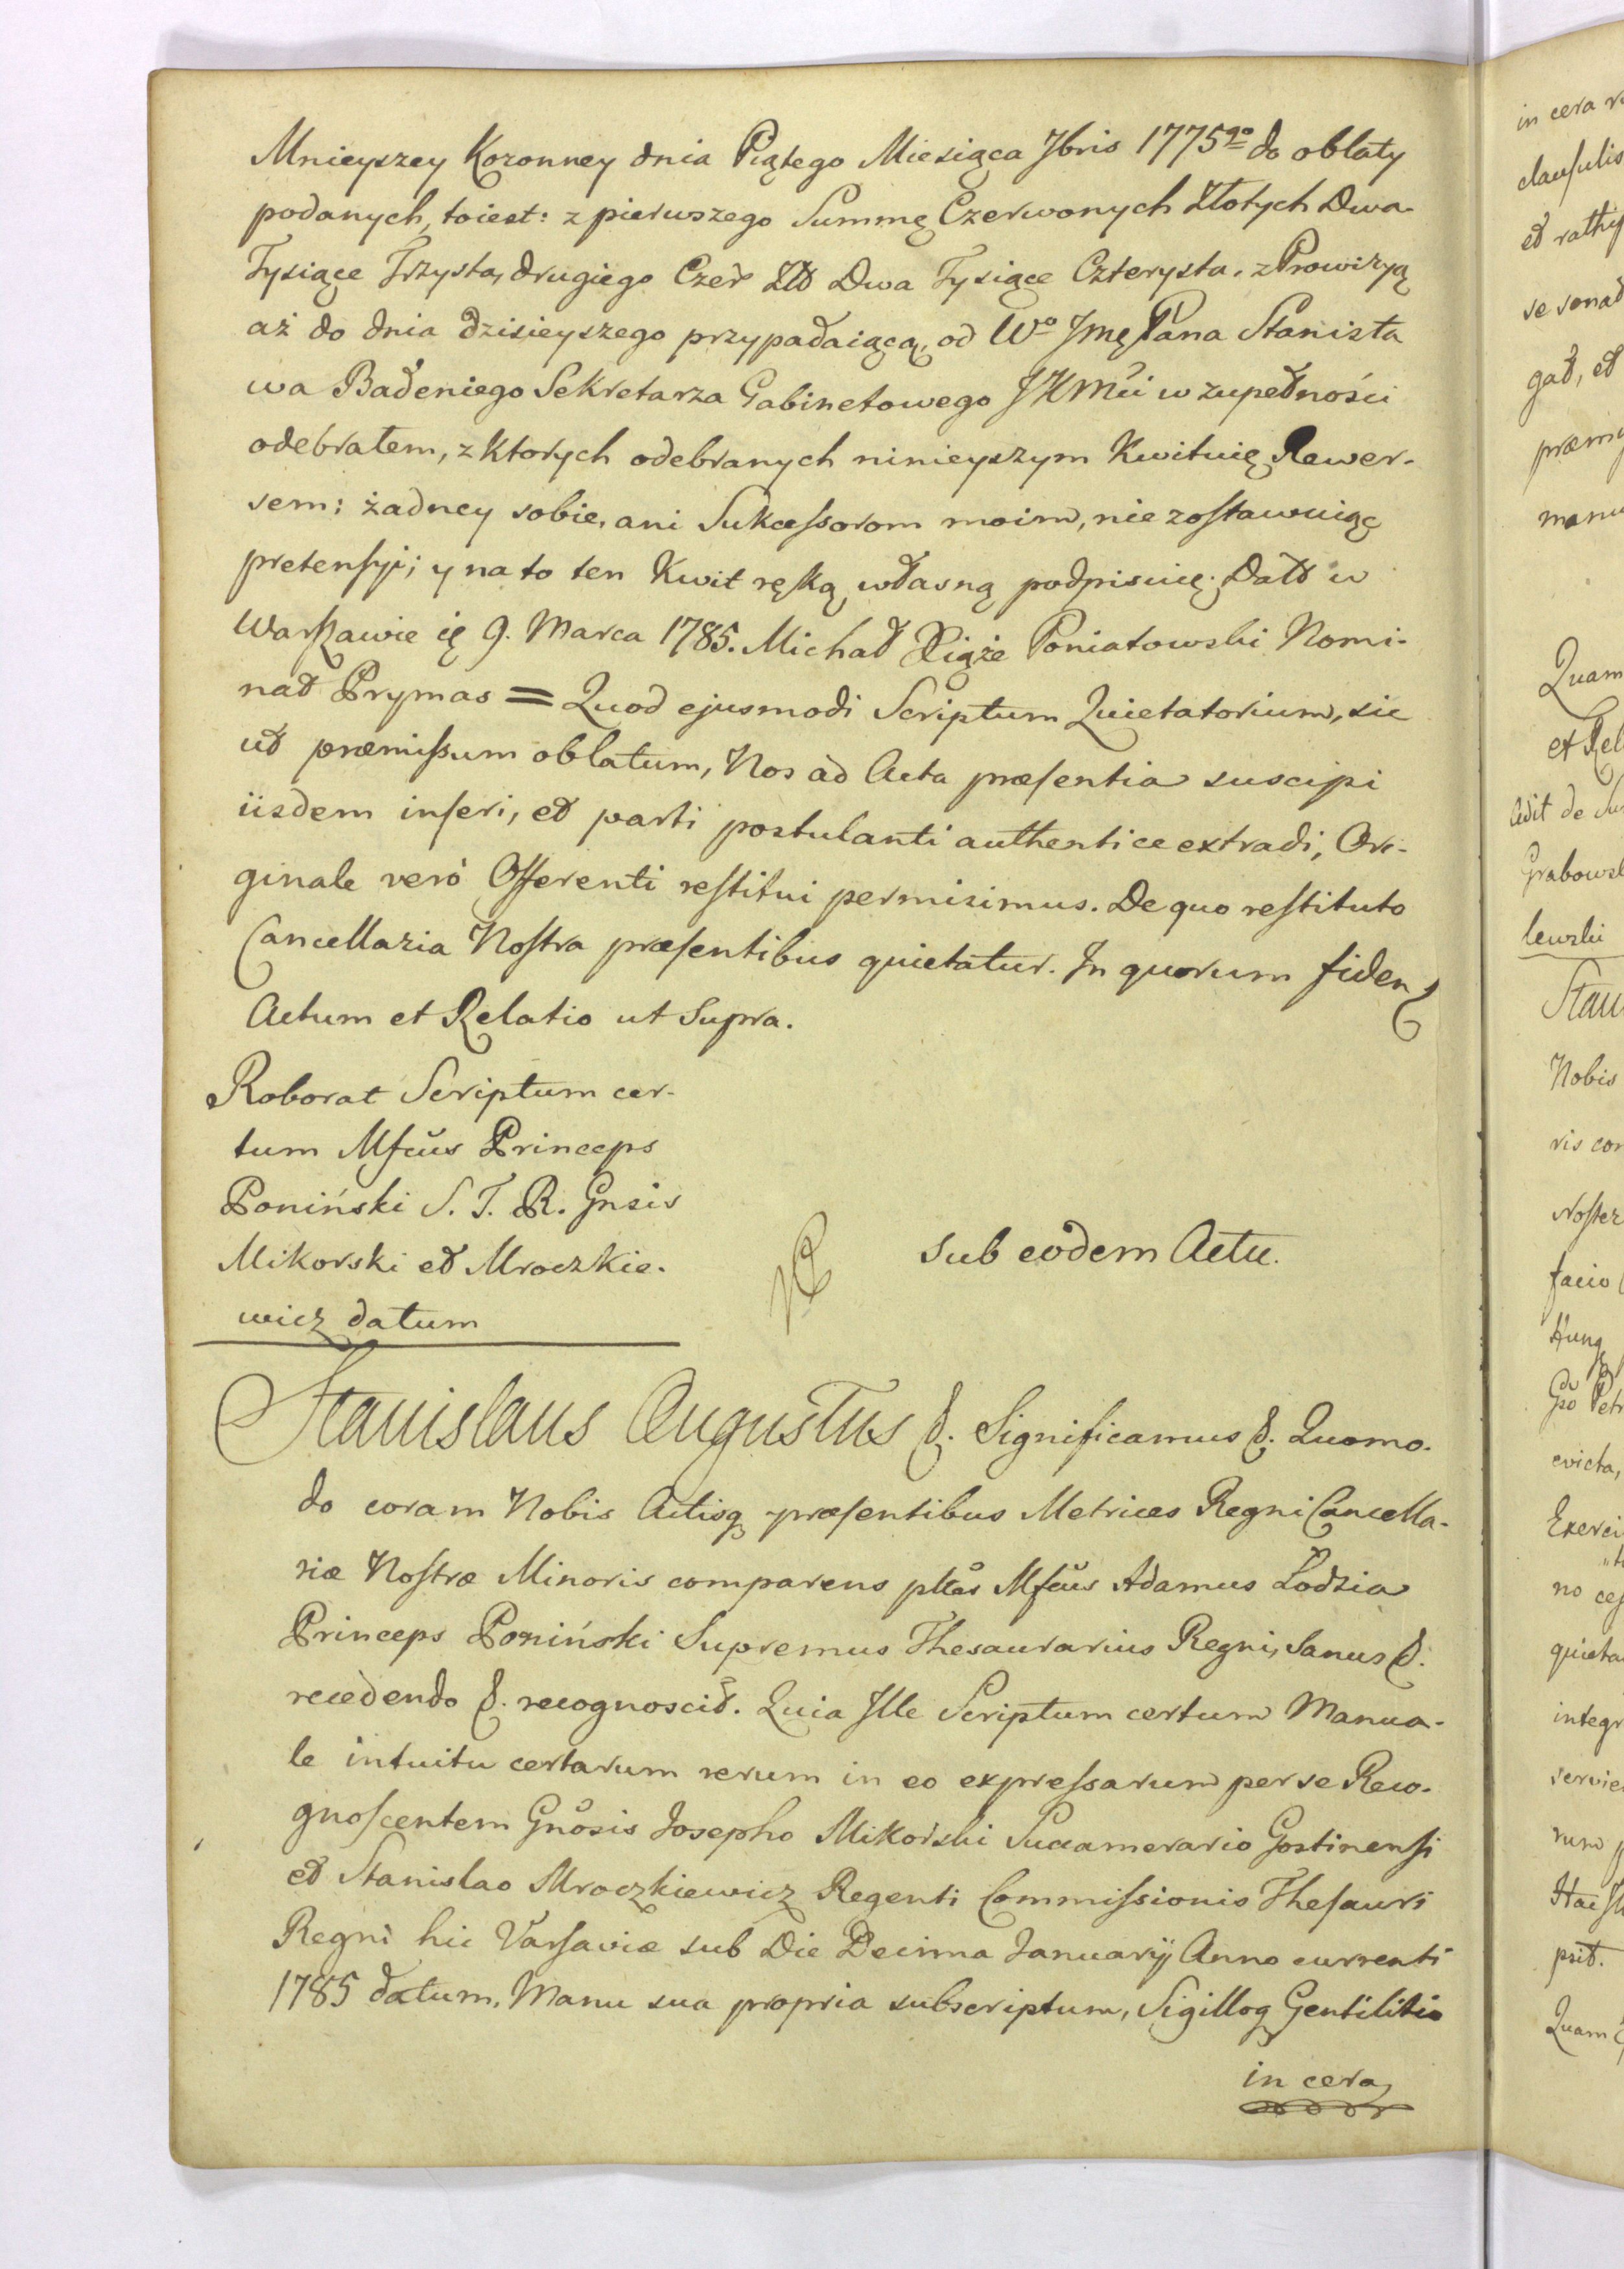 Mnieyszey Koronney dnia Piątego Miesiąca Jbris 1775go do oblaty
podanych, toiest: z pierwszego Summę Czerwonych Złotych Dwa
Tysiące Trzysta, drugiego Czer Złt Dwa Tysiące Czterysta, z Prowizyą
aż do dnia dzisieyszego przypadaiącą, od Wo Jmę Pana Stanisła
wa Badeniego Sekretarza Gabinetowego JKMci w zupełności
odebrałem, z ktorych odebranych ninieyszym Kwituię Rewer-
sem; żadney sobie, ani Sukcessorom moim, nie zostawuiąc
pretensyi; y na to ten Kwit ręką własną podpisuię. Datt w
Warszawie
9. Marca 1785. Michał Xiąże Poniatowski Nomi-
nat Prymas = Quod ejusmodi Scriptum Quietatorium, sic
ut præmissum oblatum, Nos ad Acta præsentia suscipi
iisdem inseri, et parti postulanti authentice extradi, Ori-
ginale verò Offerenti restitui permisimus. De quo restituto
Cancellaria Nostra præsentibus quietatur. In quorum fidem
Actum et Relatio ut supra.
Roborat Scriptum cer-
tum Mfcus Princeps
Poniński S. T. R. Gnsis
Mikorski et Mroczkie-
wicz datum
Sub eodem Actu.
Stanislaus Augustus &. Significamus &. Quomo-
do coram Nobis Actisq præsentibus Metrices Regni Cancella-
riæ Nostræ Minoris comparens pltas Mfcus Adamus Lodzia
Princeps Poniński Supremus Thesaurarius Regni, Sanus &.
recedendo &. recognoscit. Quia Ille Scriptum certum Manua-
le intuitu certarum rerum in eo expressarum per se Reco-
gnoscentem Gnosis Josepho Mikorski Succamerario Gostinensi
et Stanislao Mroczkiewicz Regenti Commissionis Thesauri
Regni hic Varsaviæ sub Die Decima Januarij Anno currenti
1785 datum, Manu sua propria subscriptum, Sigilloq Gentilitio
in cera
in cera
clausulis
se
manu
Quam
Grabows
lewski
Nobis
ris con
Noster
facio
evicta,
quieta
integr
servie
Quam